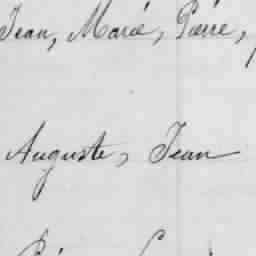 Jean, Marie, Pierre,
Auguste, Jean